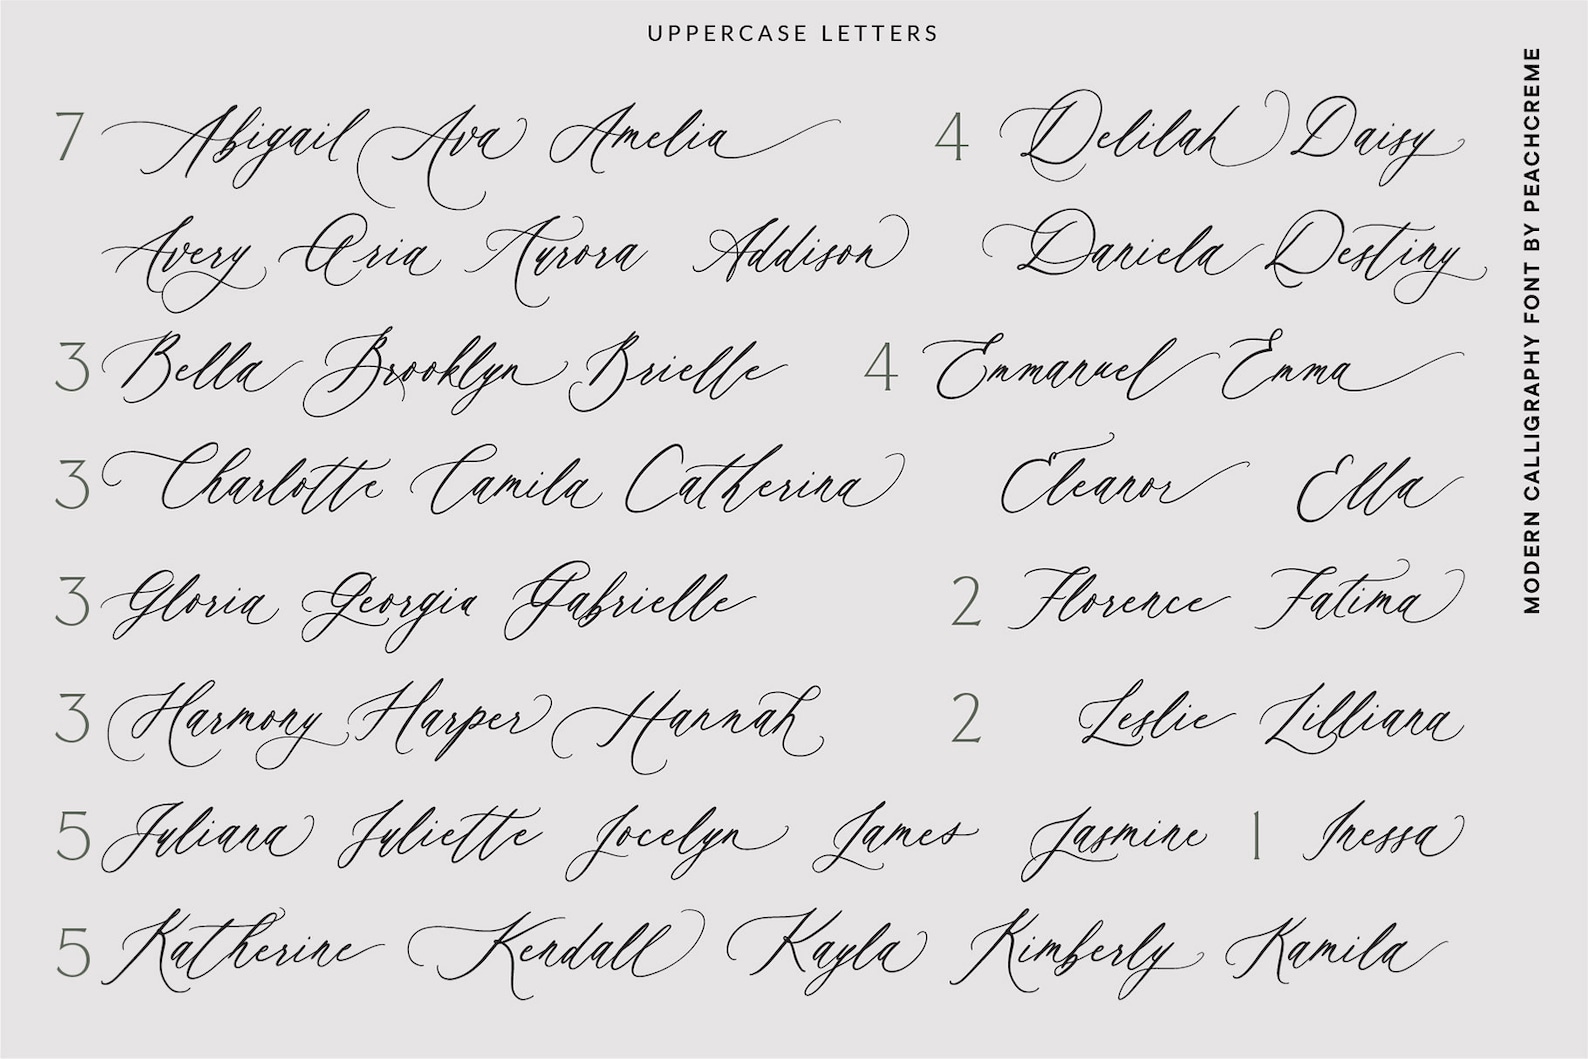 UPPERCASE LETTERS
7 Abigail Ava Amelia
Avery Aria Aurora Addison
4 Delilah Daisy
Daniela Destiny
3 Bella Brooklyn Brielle
4 Emmanuel Emma
Eleanor Ella
3 Charlotte Camila Catherina
3 Gloria Georgia Gabrielle
2 Florence Fatima
3 Harmony Harper Hannah
2 Leslie Lilliana
5 Juliana Juliette Jocelyn James Jasmine
1 Inessa
5 Katherine Kendall Kayla Kimberly Kamila
MODERN CALLIGRAPHY FONT BY PEACHCREME